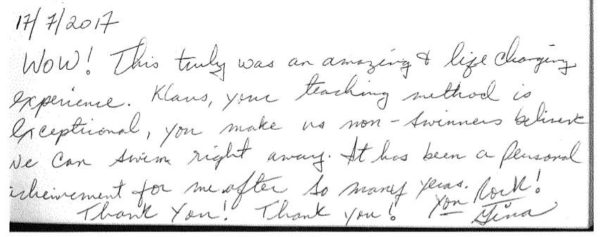 17/7/2017
WOW! This truly was an amazing & life changing
experience. Klaus, your teaching method is
exceptional, you make us non-swimmers believe
We can swim right away. It has been a personal
achievement for me after so many years. You Rock!
Thank You! Thank you! Gina